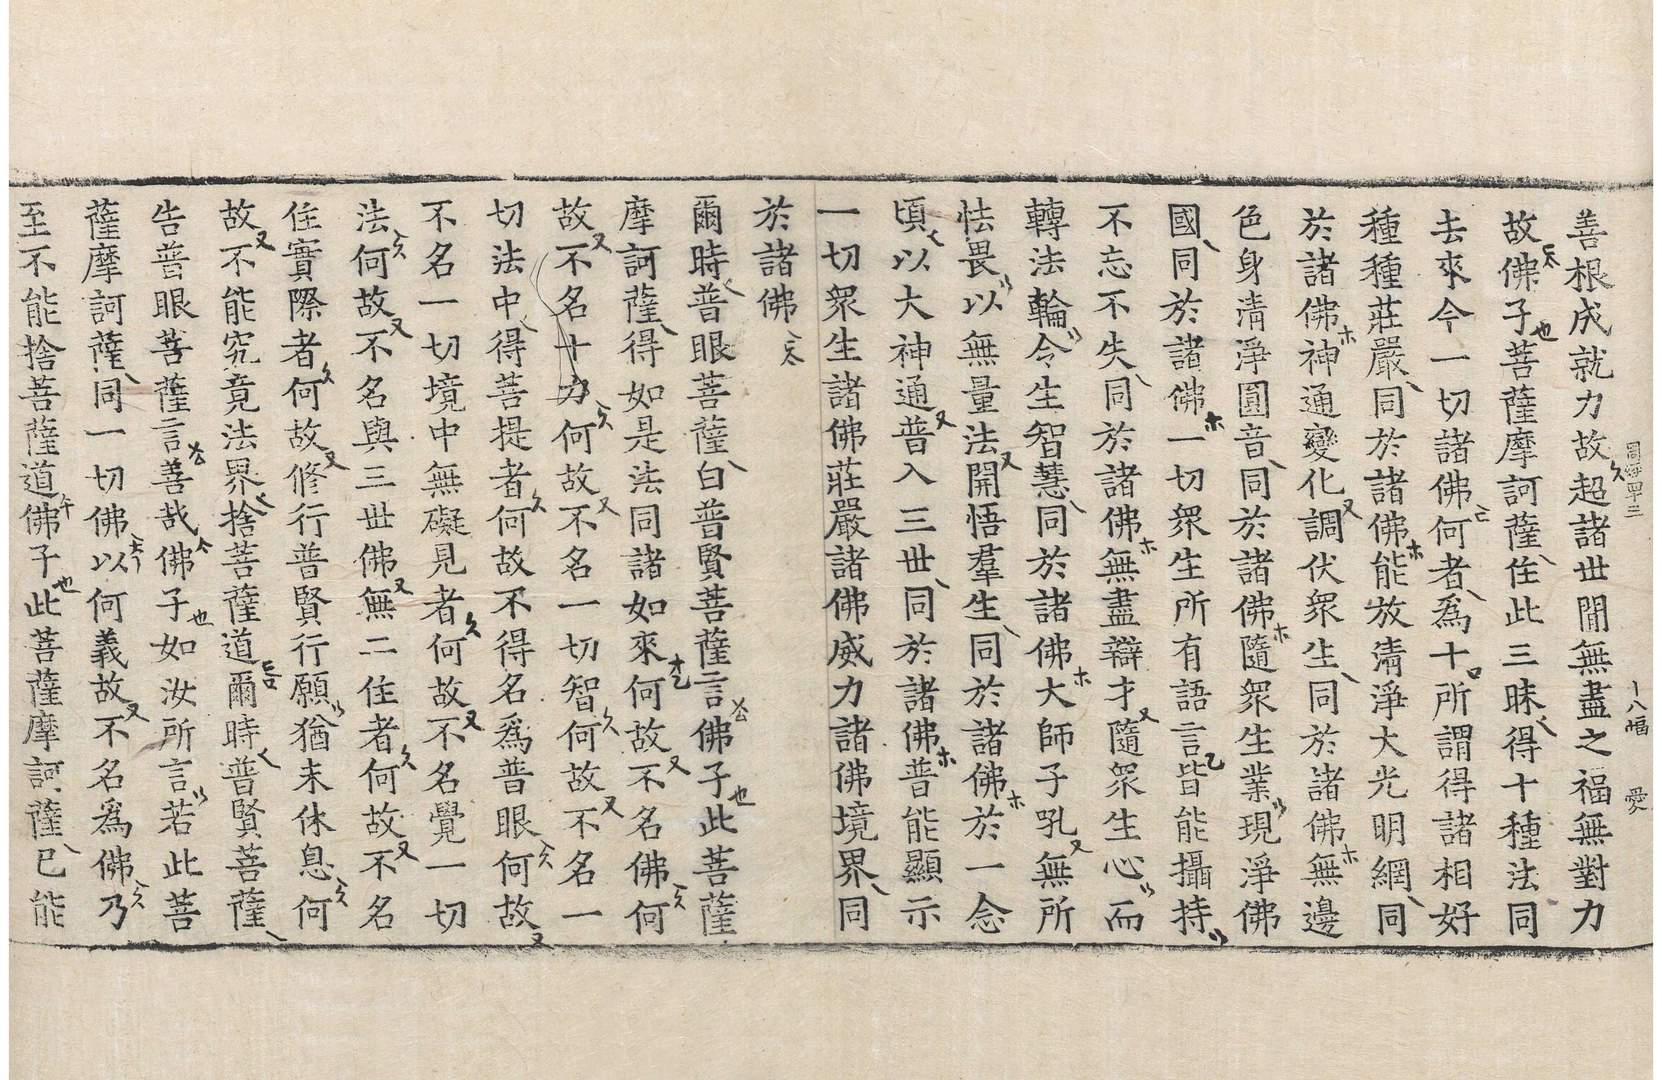 善根成就力故超諸世間無盡之福無對力
故佛子菩薩摩訶薩住此三昧得十種法同
去來今一切諸佛何者爲十所謂得諸相好
種種莊嚴同於諸佛能放清淨大光明網同
於諸佛神通變化調伏衆生同於諸佛無邊
色身清淨圓音同於諸佛隨衆生業現淨佛
國同於諸佛一切衆生所有語言皆能攝持
不忘不失同於諸佛無盡辯才隨衆生心而
轉法輪令生智慧同於諸佛大師子吼無所
怯畏以無量法開悟羣生同於諸佛於一念
頃以大神通普入三世同於諸佛普能顯示
一切衆生諸佛莊嚴諸佛威力諸佛境界同
於諸佛
爾時普眼菩薩白普賢菩薩言佛子此菩薩
摩訶薩得如是法同諸如來何故不名佛何
故不名十力何故不名一切智何故不名一
切法中得菩提者何故不得名爲普眼何故
不名一切境中無礙見者何故不名覺一切
法何故不名與三世佛無二住者何故不名
住實際者何故修行普賢行願猶未休息何
故不能究竟法界捨菩薩道爾時普賢菩薩
告普眼菩薩言善哉佛子如汝所言若此菩
薩摩訶薩同一切佛以何義故不名爲佛乃
至不能捨菩薩道佛子此菩薩摩訶薩已能